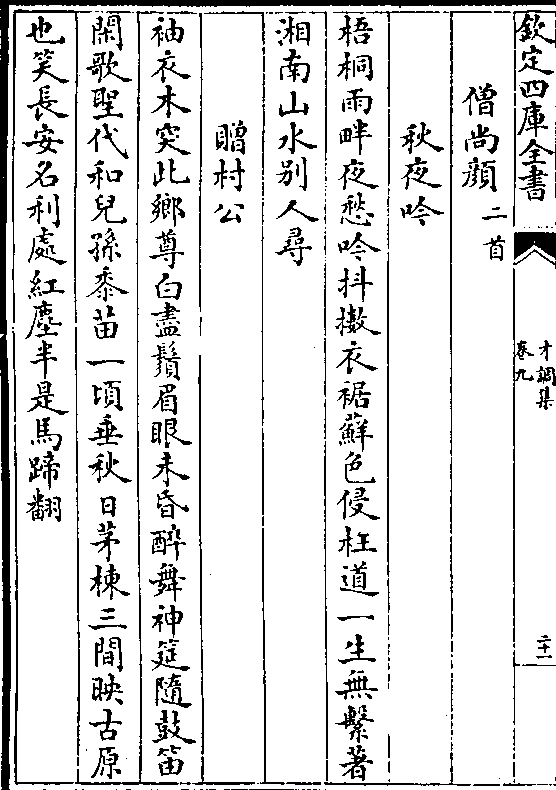 欽定四庫全書
才調集
卷九
二十一
僧尚顔二首
秋夜吟
梧桐雨畔夜愁吟抖擻衣裾蘚色侵枉道一生無繫著
湘南山水别人尋
贈村公
袖衣木突此鄉尊白盡鬚眉眼未昏醉舞神筵隨鼓笛
閑歌聖代和兒孫黍苗一頃垂秋日茅棟三間映古原
也笑長安名利處紅塵半是馬蹄翻